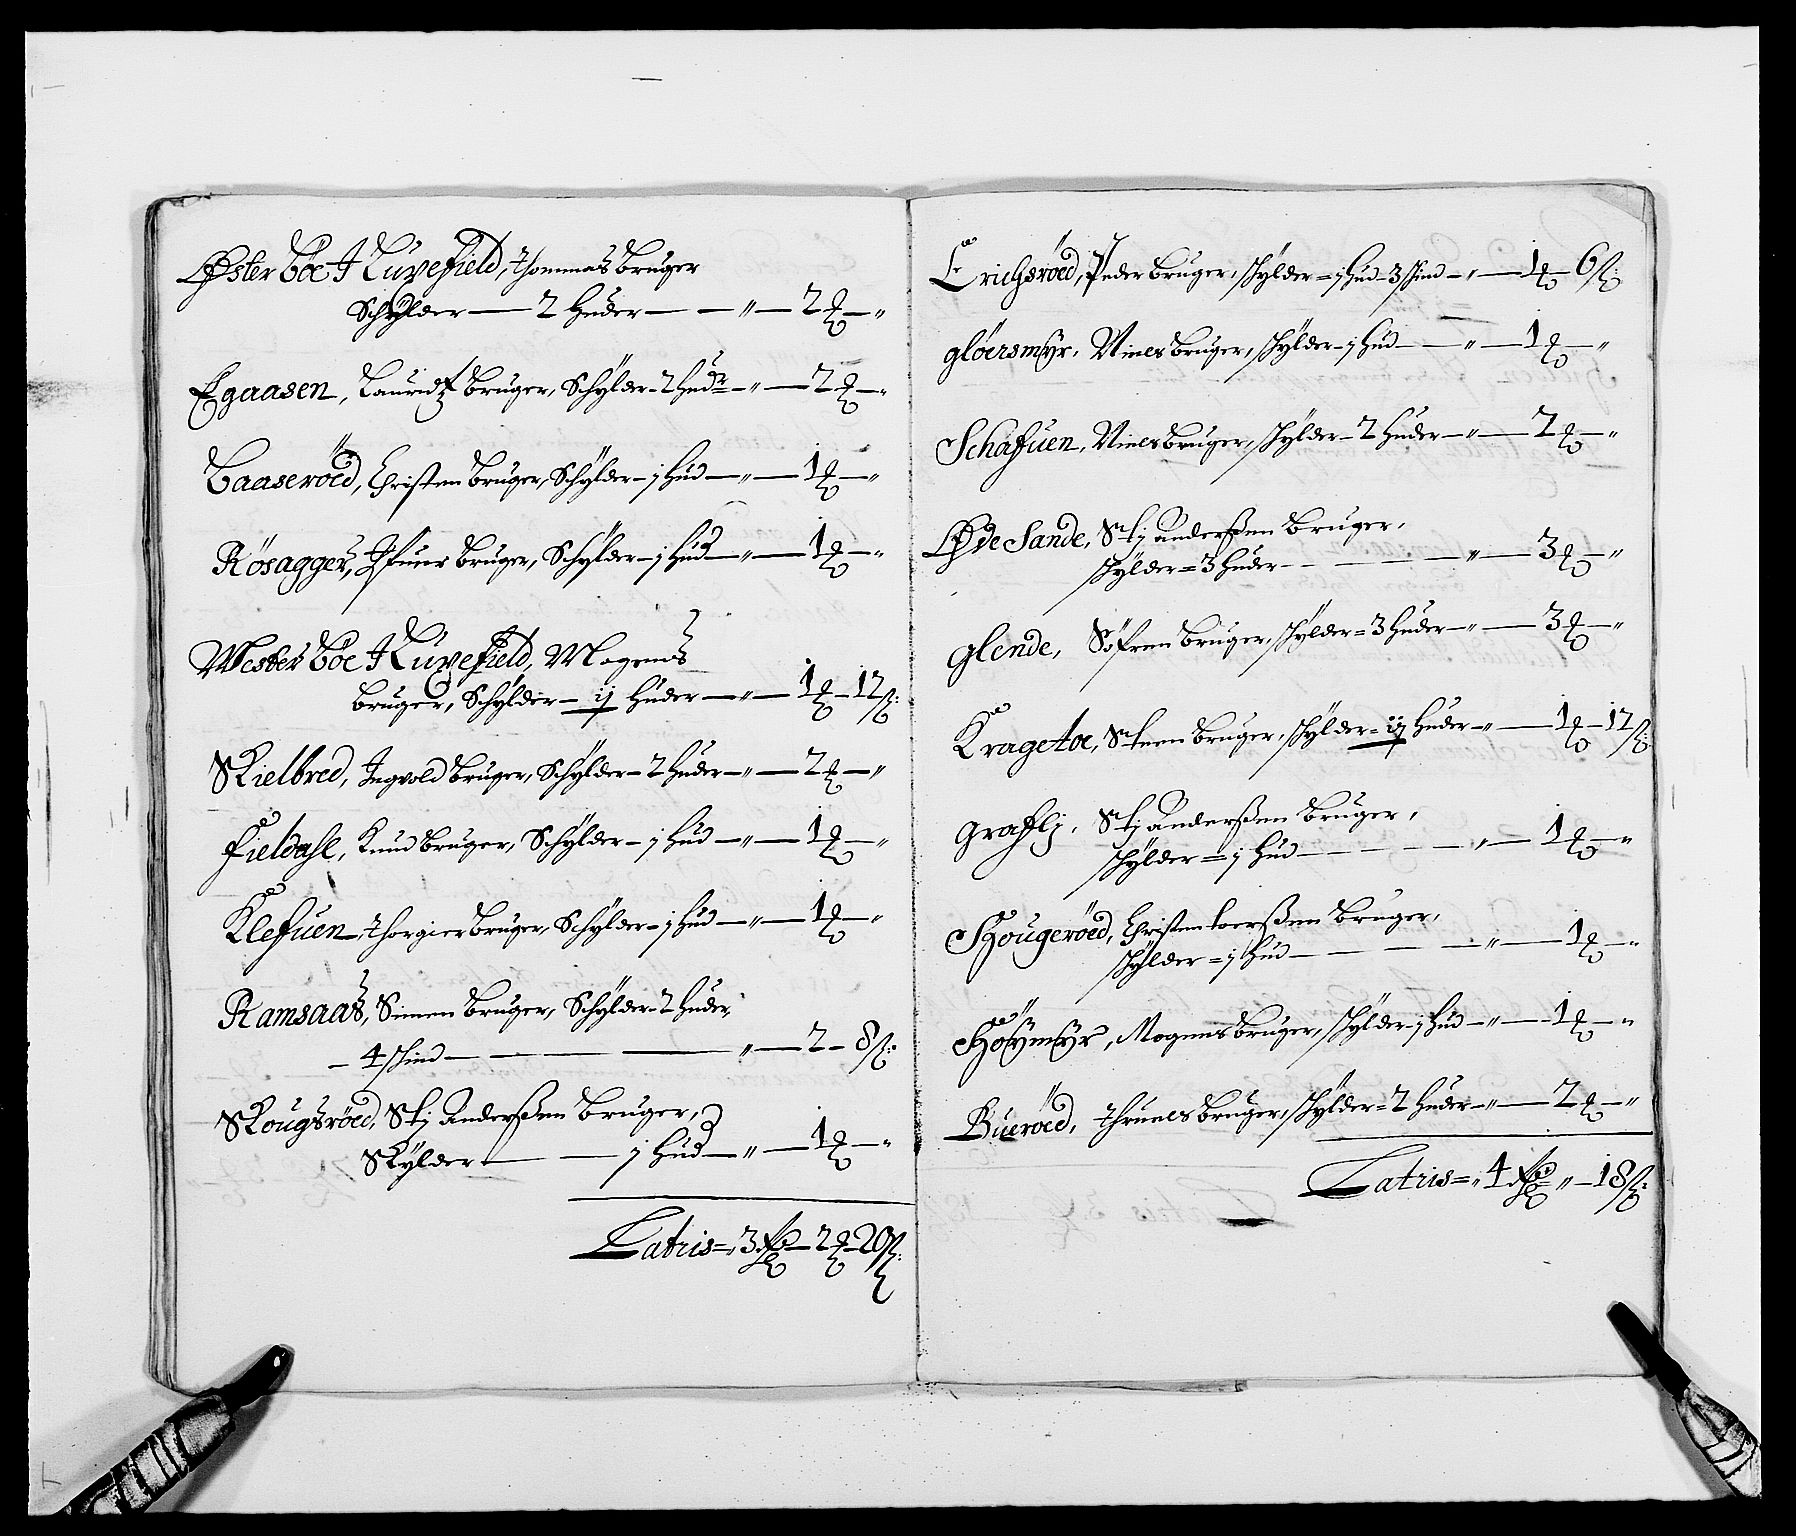 Øster böe I Luxefield, Thommas bruger
Schÿlder — 2 huder — — " — 2 ꝶ — "
Egaasen, Lauridtz bruger, Schÿlder - 2 hudr - " — 2 ꝶ — "
Baaseröed, Christen bruger, Schÿlder - j hud — " — 1 ꝶ — "
Rösagger, bruger, Schÿlder - j hud — " — 1 ꝶ — "
Wester böe I Luxefield, Mogens
bruger, Schÿlder - ij huder — " — 1 ꝶ - 12 s:
Skielbred, Ingvold bruger, Schÿlder - 2 huder - " — 2 ꝶ — "
Fieldahl, Knud bruger, Schÿlder - j hud — " — 1 ꝶ — "
Klefuen, Thorgier bruger, Schÿlder - j hud — " — 1 ꝶ — "
Ramsaas, Simen bruger, Schÿlder - 2 huder,
- 4 schind — — — " — 2 - 8 s:
Skougsröed, Stj Anderßen bruger,
Skÿlder — — j hud — " — 1 ꝶ — "
Latris = 3 - 2 ꝶ - 20 s:
Erichsröed, Peder bruger, schÿlder = j hud - 3 schind - " — 1 ꝶ - 6 s:
glöersmÿr, Niels bruger, schÿlder - j hud — " — 1 ꝶ — "
Schafuen, Niels bruger, schÿlder - 2 huder - " — 2 ꝶ — "
Øde Sande, Stj Anderßen bruger,
schÿlder = 3 huder - - — — " — 3 ꝶ — "
glende, Söfren bruger, schÿlder = 3 huder - " — 3 ꝶ — "
Kragetoe, Steen bruger, schÿlder = ij huder - " — 1 ꝶ - 12 s:
graflj, Stj Anderßen bruger,
schÿlder = j hud - - - - " — 1 ꝶ — "
Hougeröed, Christen bruger,
schÿlder = j hud - — — — " — 1 ꝶ — "
Höÿmÿr, Mogens bruger, schÿlder - j hud - " — 1 ꝶ — "
Bueröed, Thruels bruger, schÿlder = 2 huder - " — 2 ꝶ — "
Latris = " 4 " - 18 s: